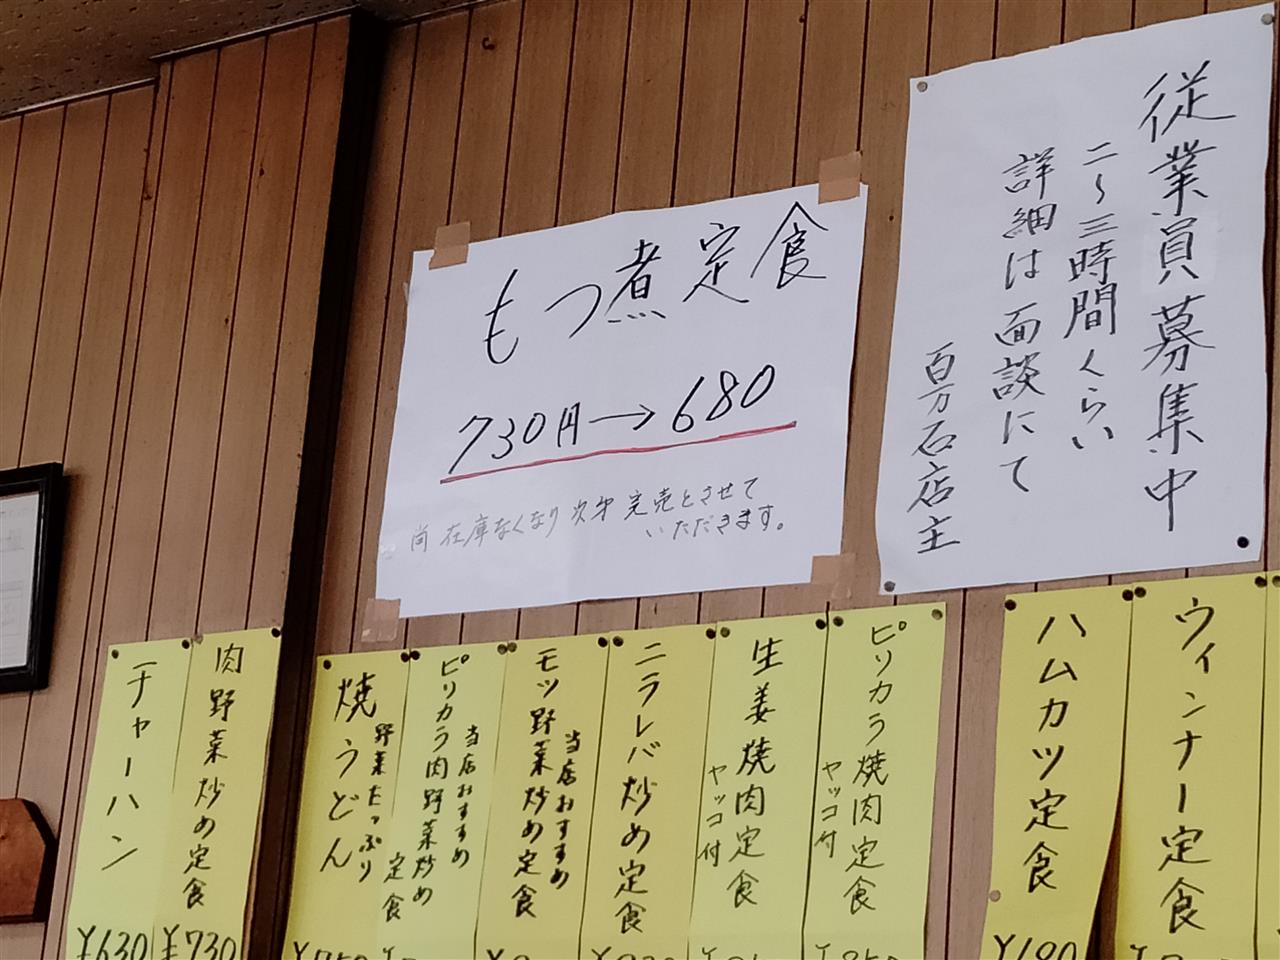 従業員募集中
二〜三時間くらい
詳細は面談にて
百万石店主
もつ煮定食
730円→680
尚在庫なくなり次第完売とさせて
いただきます。
ウィンナー定食
ハムカツ定食
ピリカラ焼肉定食
ヤッコ付
生姜焼肉定食
ヤッコ付
ニラレバ炒め定食
当店おすすめ
モツ野菜炒め定食
当店おすすめ
ピリカラ肉野菜炒め
定食
焼うどん
野菜たっぷり
肉野菜炒め定食
¥730
チャーハン
¥630